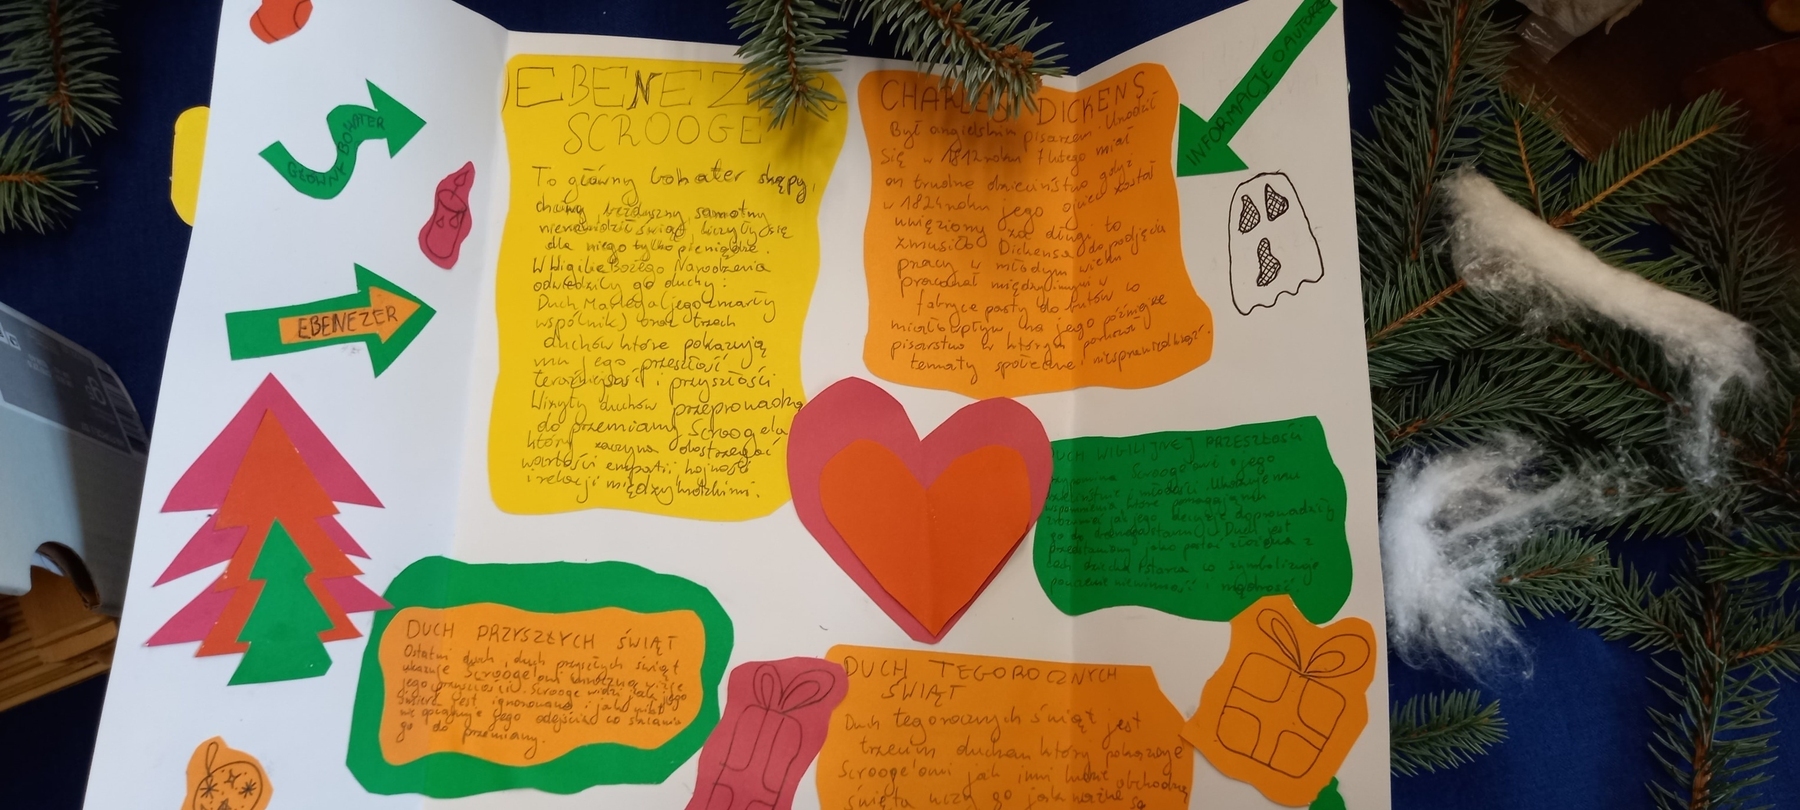 GŁÓWNY BOHATER
EBENEZER
EBENEZER
SCROOGE
To główny bohater skąpy,
chciwy, samotny
nienawidzi świąt liczyły się
dla niego tylko pieniądze.
W Wigilię Bożego Narodzenia
odwiedziły go duchy:
Duch Marleya (jego zmarły
wspólnik) oraz trzech
duchów które pokazują
mu jego przeszłość
teraźniejszość i przyszłości
Wizyty duchów przeprowadzą
do przemiany Scrooge'a
który zaczyna dostrzegać
wartości empatii hojność
i relacji międzyludzkimi.
CHARLES DICKENS
Był angielskim pisarzem. Urodził
się w 1812 roku 7 lutego miał
on trudne dzieciństwo gdyż
w 1824 roku jego ojciec został
uwięziony za długi to
zmusiło Dickensa do podjęcia
pracy w młodym wieku
pracował między innymi w
fabryce pasty do butów co
miało wpływ na jego późniejsze
pisarstwo w których poruszał
tematy społeczne i niesprawiedliwość.
INFORMACJE O AUTORZE
DUCH WIGILIJNEJ PRZESZŁOŚCI
Scrooge'owi o jego
i młodości. Ukazuje mu
wspomnienia które pomagają mu
zrozumieć jak jego decyzje doprowadziły
go do Duch jest
przedstawiony jako postać złożona z
cech dziecka i starca co symbolizuje
połączenie niewinność i mądrość.
DUCH PRZYSZŁYCH ŚWIĄT
Ostatni duch, duch przyszłych świąt
ukazuje Scrooge'owi mroczną wizję
jego przyszłości. Scrooge widzi jak jego
śmierć jest ignorowana i jak nikt
nie opłakuje jego odejścia co skłania
go do przemiany.
DUCH TEGOROCZNYCH
ŚWIĄT
Duch tegorocznych świąt jest
trzecim duchem który pokazuje
Scrooge'owi jak inni ludzie obchodzą
święta uczy go jak ważne są